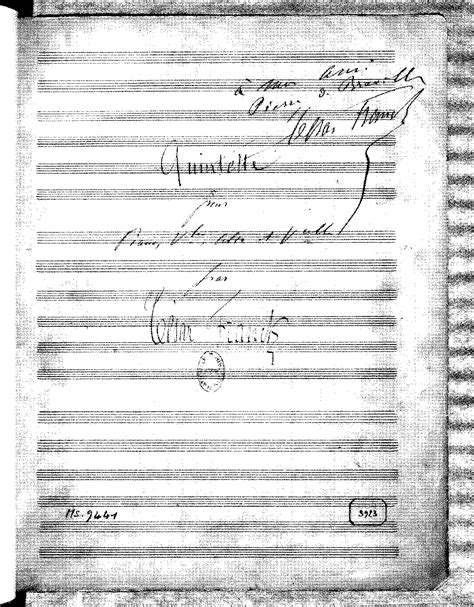 à mon ami
Pierre de Bréville
César Franck
Quintette
pour
Piano, Vls, alto et Vcelle
par
César Franck
Ms. 9441
3923